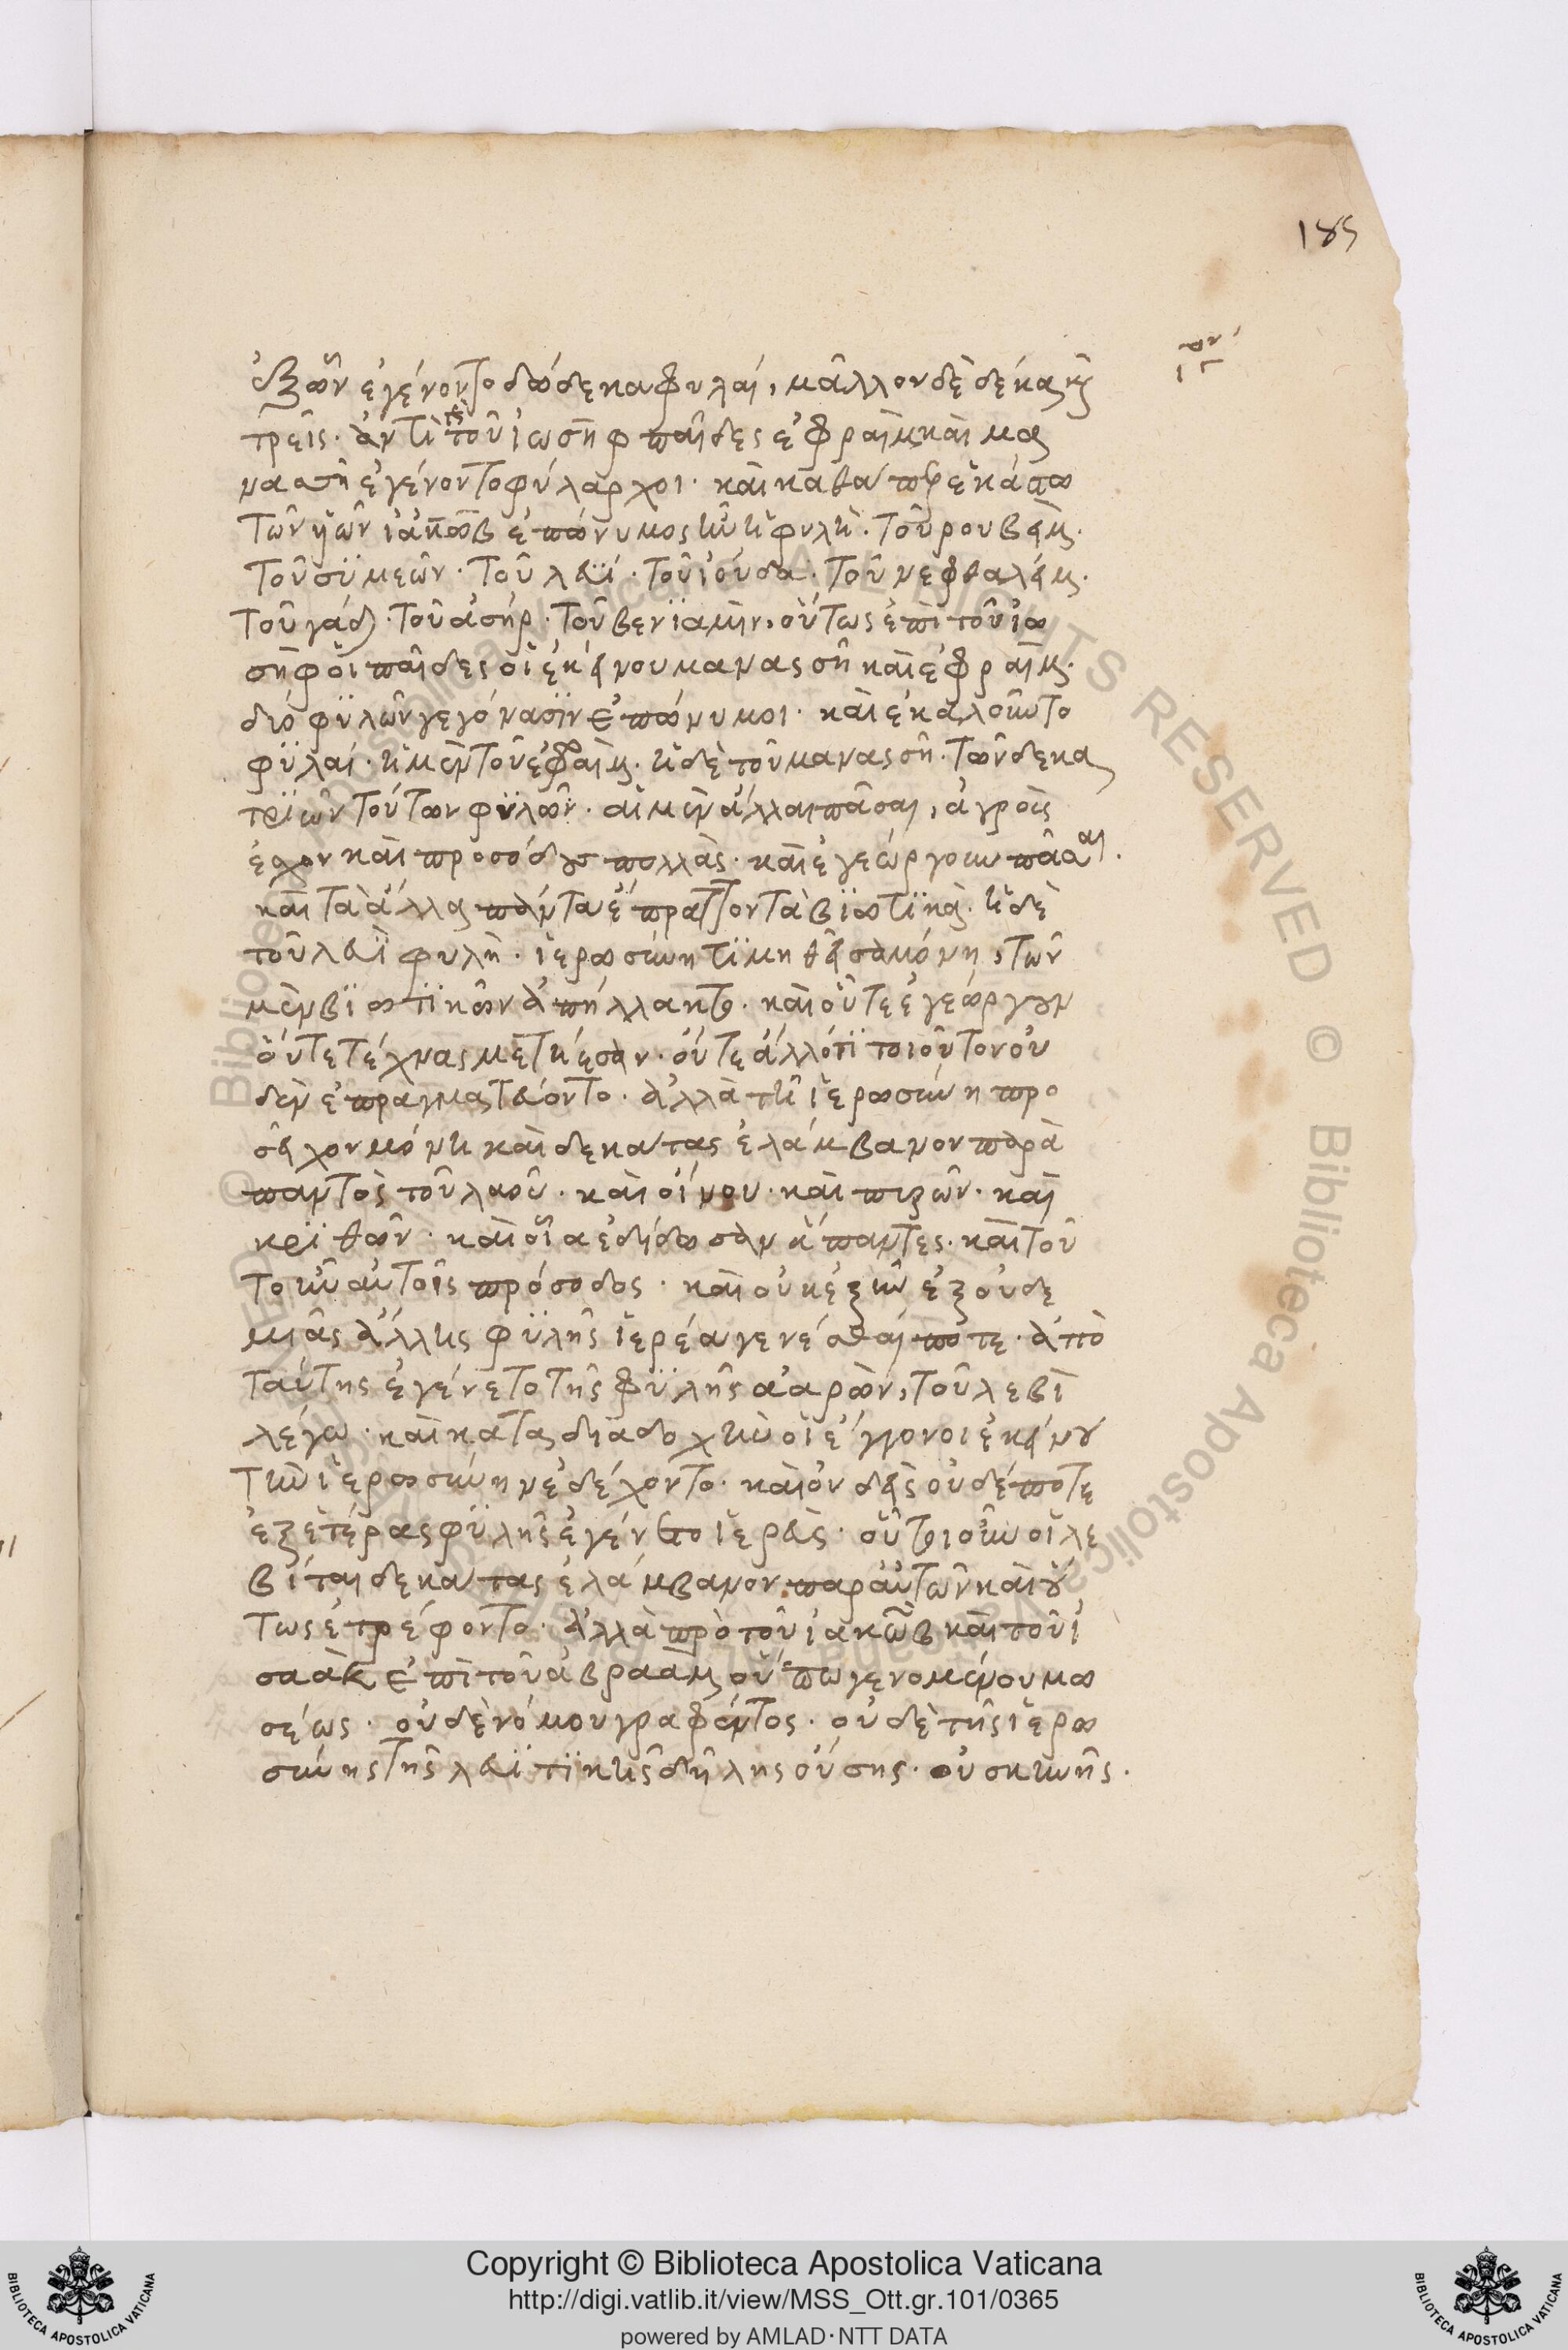 185
ἐξ ὧν ἐγένοντο δώδεκα φυλαί, μᾶλλον δὲ δέκα κ̀
τρεῖς· ἀντὶ κ̀ τοῦ ἰωσὴφ παῖδες ἐφραὶμ καὶ μα
νασὴ ἐγένοντο φύλαρχοι· καὶ καθάπερ ἑκάστω
τῶν ϋἱῶν ἰακὼβ ἐπώνυμος ἦν ἡ φυλὴ· τοῦ ρουβεὶμ·
τοῦ σϋμεὼν· τοῦ λευΐ· τοῦ ἰούδα· τοῦ νεφθαλείμ·
τοῦ γάδ· τοῦ ἀσήρ· τοῦ βενϊαμὶν, οὕτως ἐπὶ τοῦ ἰω
σὴφ οἱ παῖδες οἱ ἐκείνου μανασσῆ καὶ ἐφραὶμ·
διό φϋλῶν γεγόνασϊν ἐπώνυμοι· καὶ ἐκαλοῦντο
φϋλαί· ἡ μὲν τοῦ ἐφραὶμ· ἡ δὲ τοῦ μανασσῆ· τῶν δεκα
τρϊῶν τούτων φϋλῶν· αἱ μὲν ἄλλαι πᾶσαι, ἀγροὺς
ἔχον καὶ προσόδους πολλὰς· καὶ ἐγεώργουν πᾶσαι·
καὶ τὰ ἄλλα πάντα ἔπραττον τὰ βϊωτϊκὰ· ἡ δὲ
τοῦ λευῒ φυλὴ· ἱερωσύνη τϊμηθεῖσα μόνη, τῶν
μὲν βϊωτϊκῶν ἀπήλλακτο· καὶ οὔτε ἐγεώργουν
οὔτε τέχνας μετήεσαν· οὔτε ἄλλό τϊ τοιοῦτον οὐ
δὲν ἐπραγματεύοντο· ἀλλὰ τῆ ἱερωσύνη προ
σεῖχον μόνη καὶ δεκάτας ἐλάμβανον παρὰ
παντὸς τοῦ λαοῦ· καὶ οἴνου· καὶ πυρῶν· καὶ
κρϊθῶν· καὶ οἷα ἐδίδωσαν ἅπαντες· καὶ τοῦ
το ἦν αὐτοῖς πρόσοδος· καὶ οὐκ ἐξῆν ἐξ οὐδε
μιᾶς ἄλλης φϋλῆς ἱερέα γενέσθαί ποτε· ἀπὸ
ταύτης ἐγένετο τῆς φϋλῆς ἀαρὼν, τοῦ λεβὶ
λέγω· καὶ κατὰ διαδοχὴν οἱ ἔγγονοι ἐκείνου
τὴν ἱερωσύνην ἐδέχοντο· καὶ οὐδεὶς οὐδέποτε
ἐξ ἑτέρας φϋλῆς ἐγένετο ἱερεὺς· οὗτοι οὖν οἱ λε
βίται δεκάτας ἐλάμβανον παρ' αὐτῶν καὶ οὕ
τως ἐτρέφοντο· ἀλλὰ πρὸ τοῦ ἰακὼβ καὶ τοῦ ἰ
σαὰκ ἐπὶ τοῦ ἀβραὰμ οὔπω γενομένου μω
σέως· οὐδὲ νόμου γραφέντος· οὐδὲ τῆς ἱερω
σύνης τῆς λευϊτϊκῆς δήλης οὔσης· οὐ σκηνῆς·
Copyright © Biblioteca Apostolica Vaticana
http://digi.vatlib.it/view/MSS_Ott.gr.101/0365
powered by AMLAD·NTT DATA